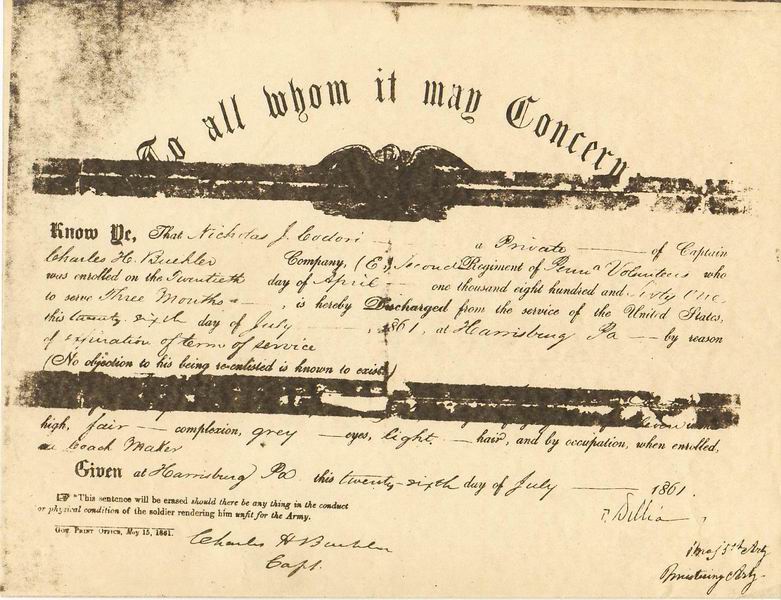 To all whom it may Concern
Know Ye, That Nicholas J. Codori a Private of Captain
Charles H. Buehler Company, (E,) Second Regiment of Penna Volunteers who
was enrolled on the Twentieth day of April one thousand eight hundred and Sixty One
to serve Three Months, is hereby Discharged from the service of the United States,
this twenty sixth day of July, 1861, at Harrisburg Pa by reason
of expiration of term of service
(No objection to his being re-enlisted is known to exist.)
high, fair complexion, grey eyes, light hair, and by occupation, when enrolled,
a Coach Maker
Given at Harrisburg Pa this twenty-sixth day of July 1861.
☞ *This sentence will be erased should there be any thing in the conduct
or physical condition of the soldier rendering him unfit for the Army.
Gov. Print Office, May 15, 1861.
Charles H Buehler
Capt.
5th Arty
Mustering